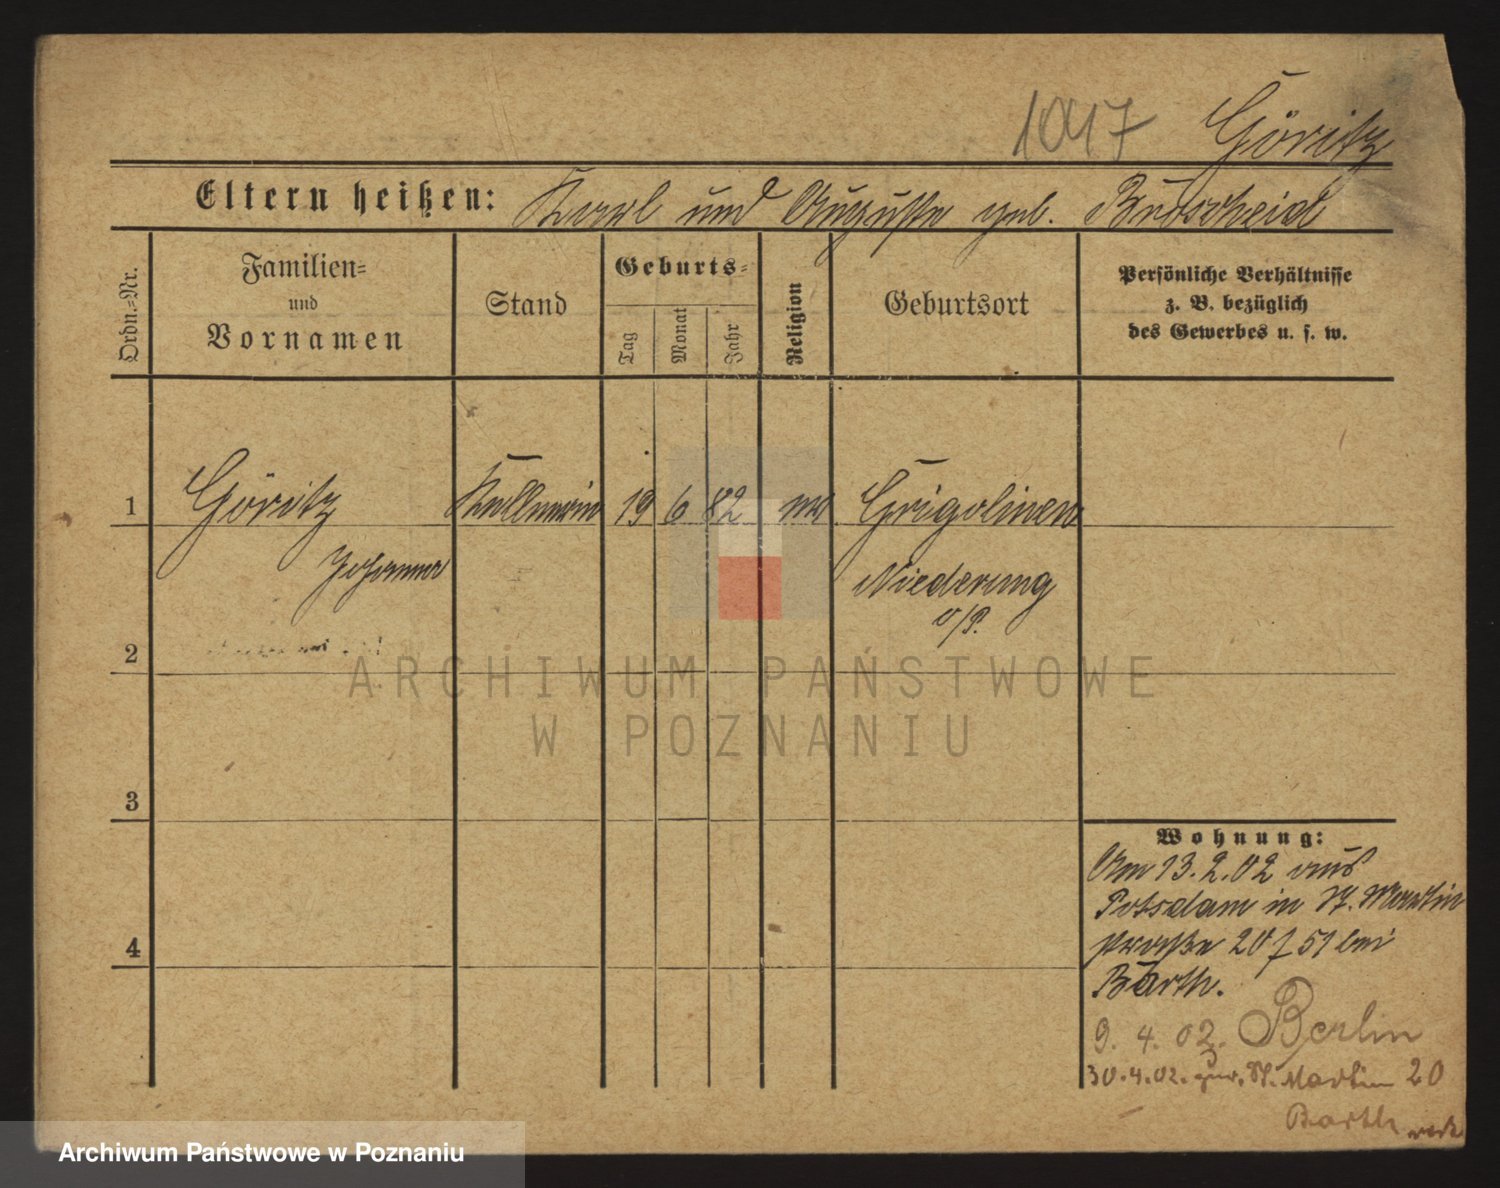 1017 Göritz
Eltern heißen: Karl und Auguste geb. Broscheid
Ordn.=Nr.
Familien=
und
Vornamen
Stand
Geburts=
Tag
Monat
Jahr
Religion
Geburtsort
Persönliche Verhältnisse
z. B. bezüglich
des Gewerbes u. s. w.
1 Göritz Kellnerin 19 6 82 Grigolinen
Johanna Niederung
o/P.
2
3
4
Wohnung:
Am 13.2.02 aus
Potsdam in St. Martin
straße 20 bei
Barth.
9. 4. 02. Berlin
30.4.02. zur. St. Martin 20
Barth
ARCHIWUM PAŃSTWOWE
W POZNANIU
Archiwum Państwowe w Poznaniu